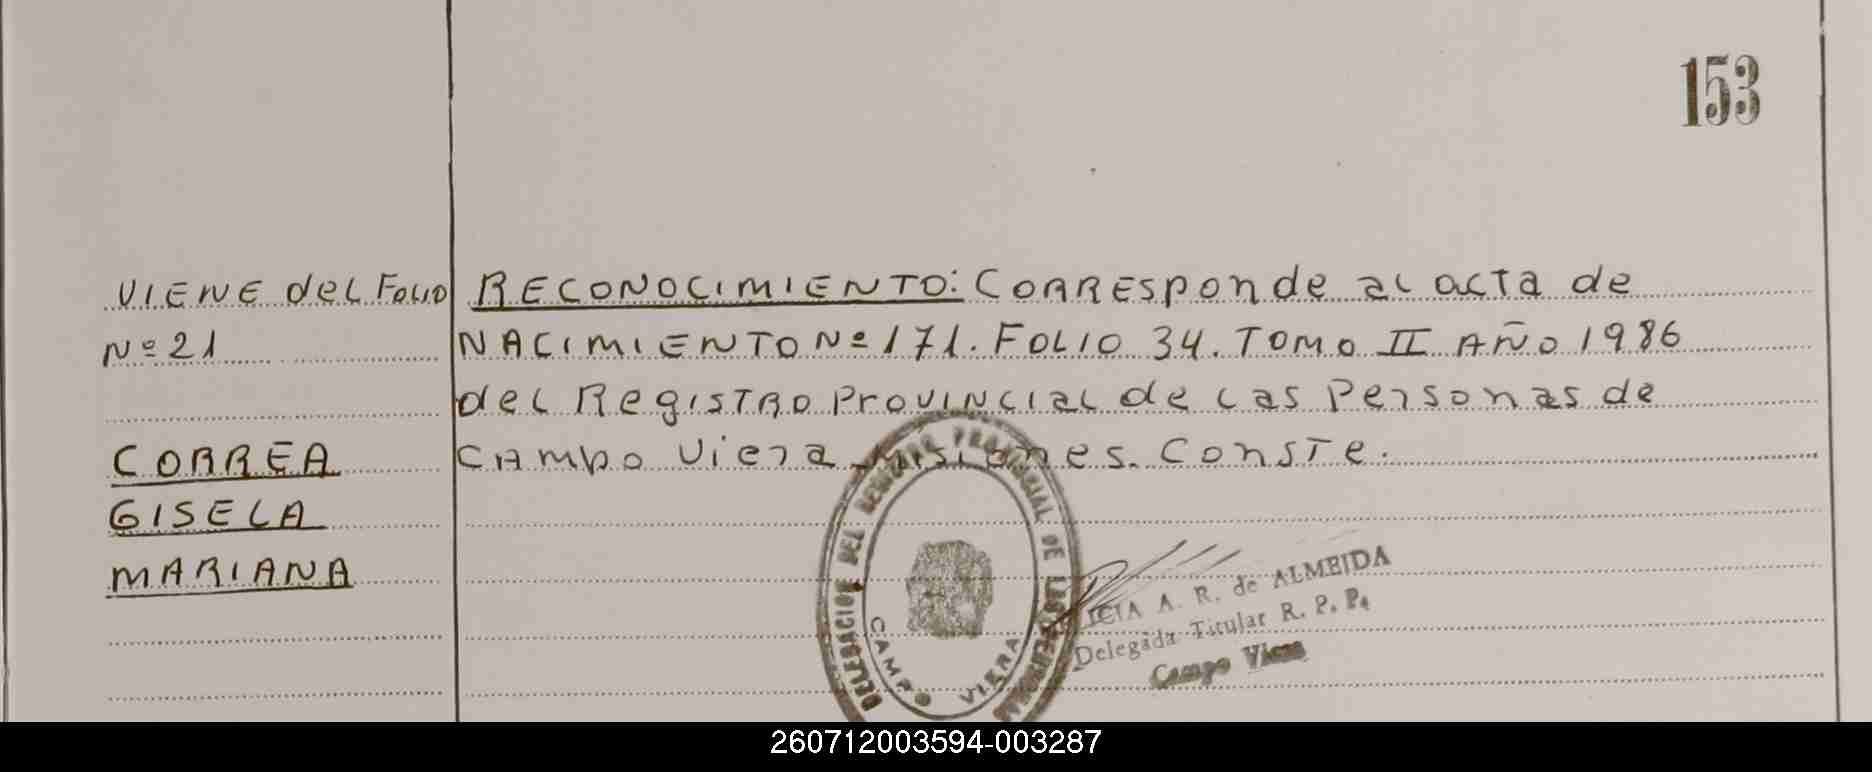 153
VIENE del FOLIO
Nº 21
CORREA
GISELA
MARIANA
RECONOCIMIENTO: CORRESponde al acta de
NACIMIENTO Nº 171. FOLIO 34. TOMO II AÑO 1986
del REgISTRO PROVINCIAL de las Personas de
CAMpo Viera Misiones. CONSTe.
DELEGACION DEL REGISTRO PROVINCIAL DE LAS PERSONAS
CAMPO VIERA
A. R. de ALMEIDA
Delegada Titular R. P. P.
Campo Viera
260712003594-003287